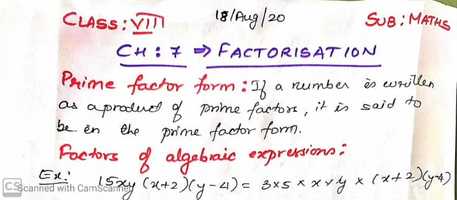 CLASS: VIII 18/Aug/20 SUB: MATHS
CH: 7 ⇒ FACTORISATION
Prime factor form: If a number is written
as a product of prime factors, it is said to
be in the prime factor form.
Factors of algebraic expressions:
Ex: 15xy (x+2)(y-4) = 3×5 × x×y × (x+2)(y-4)
CS Scanned with CamScanner